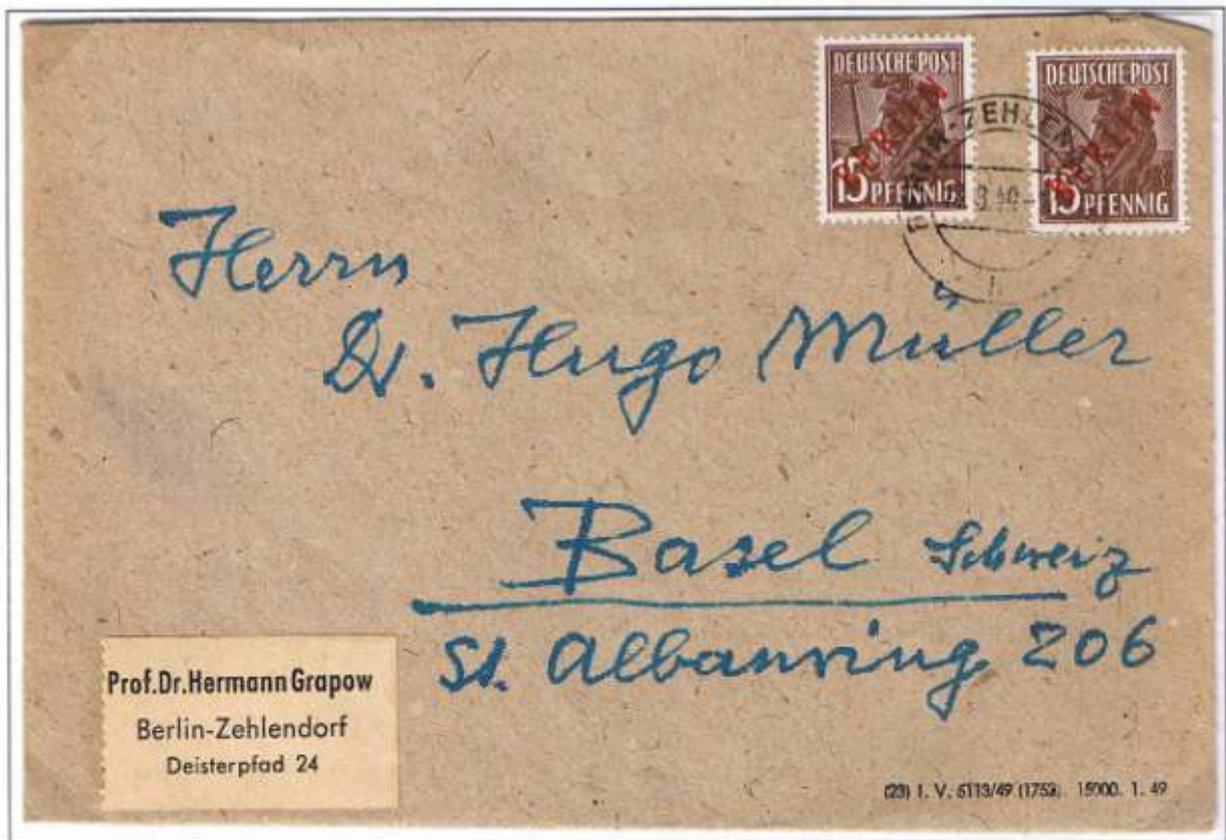 DEUTSCHE POST
BERLIN
15 PFENNIG
DEUTSCHE POST
BERLIN
15 PFENNIG
Herrn
Dr. Hugo Müller
Basel Schweiz
St. Albanring 206
Prof.Dr.Hermann Grapow
Berlin-Zehlendorf
Deisterpfad 24
(23) I. V. 5113/49 (1753). 15000. 1. 49